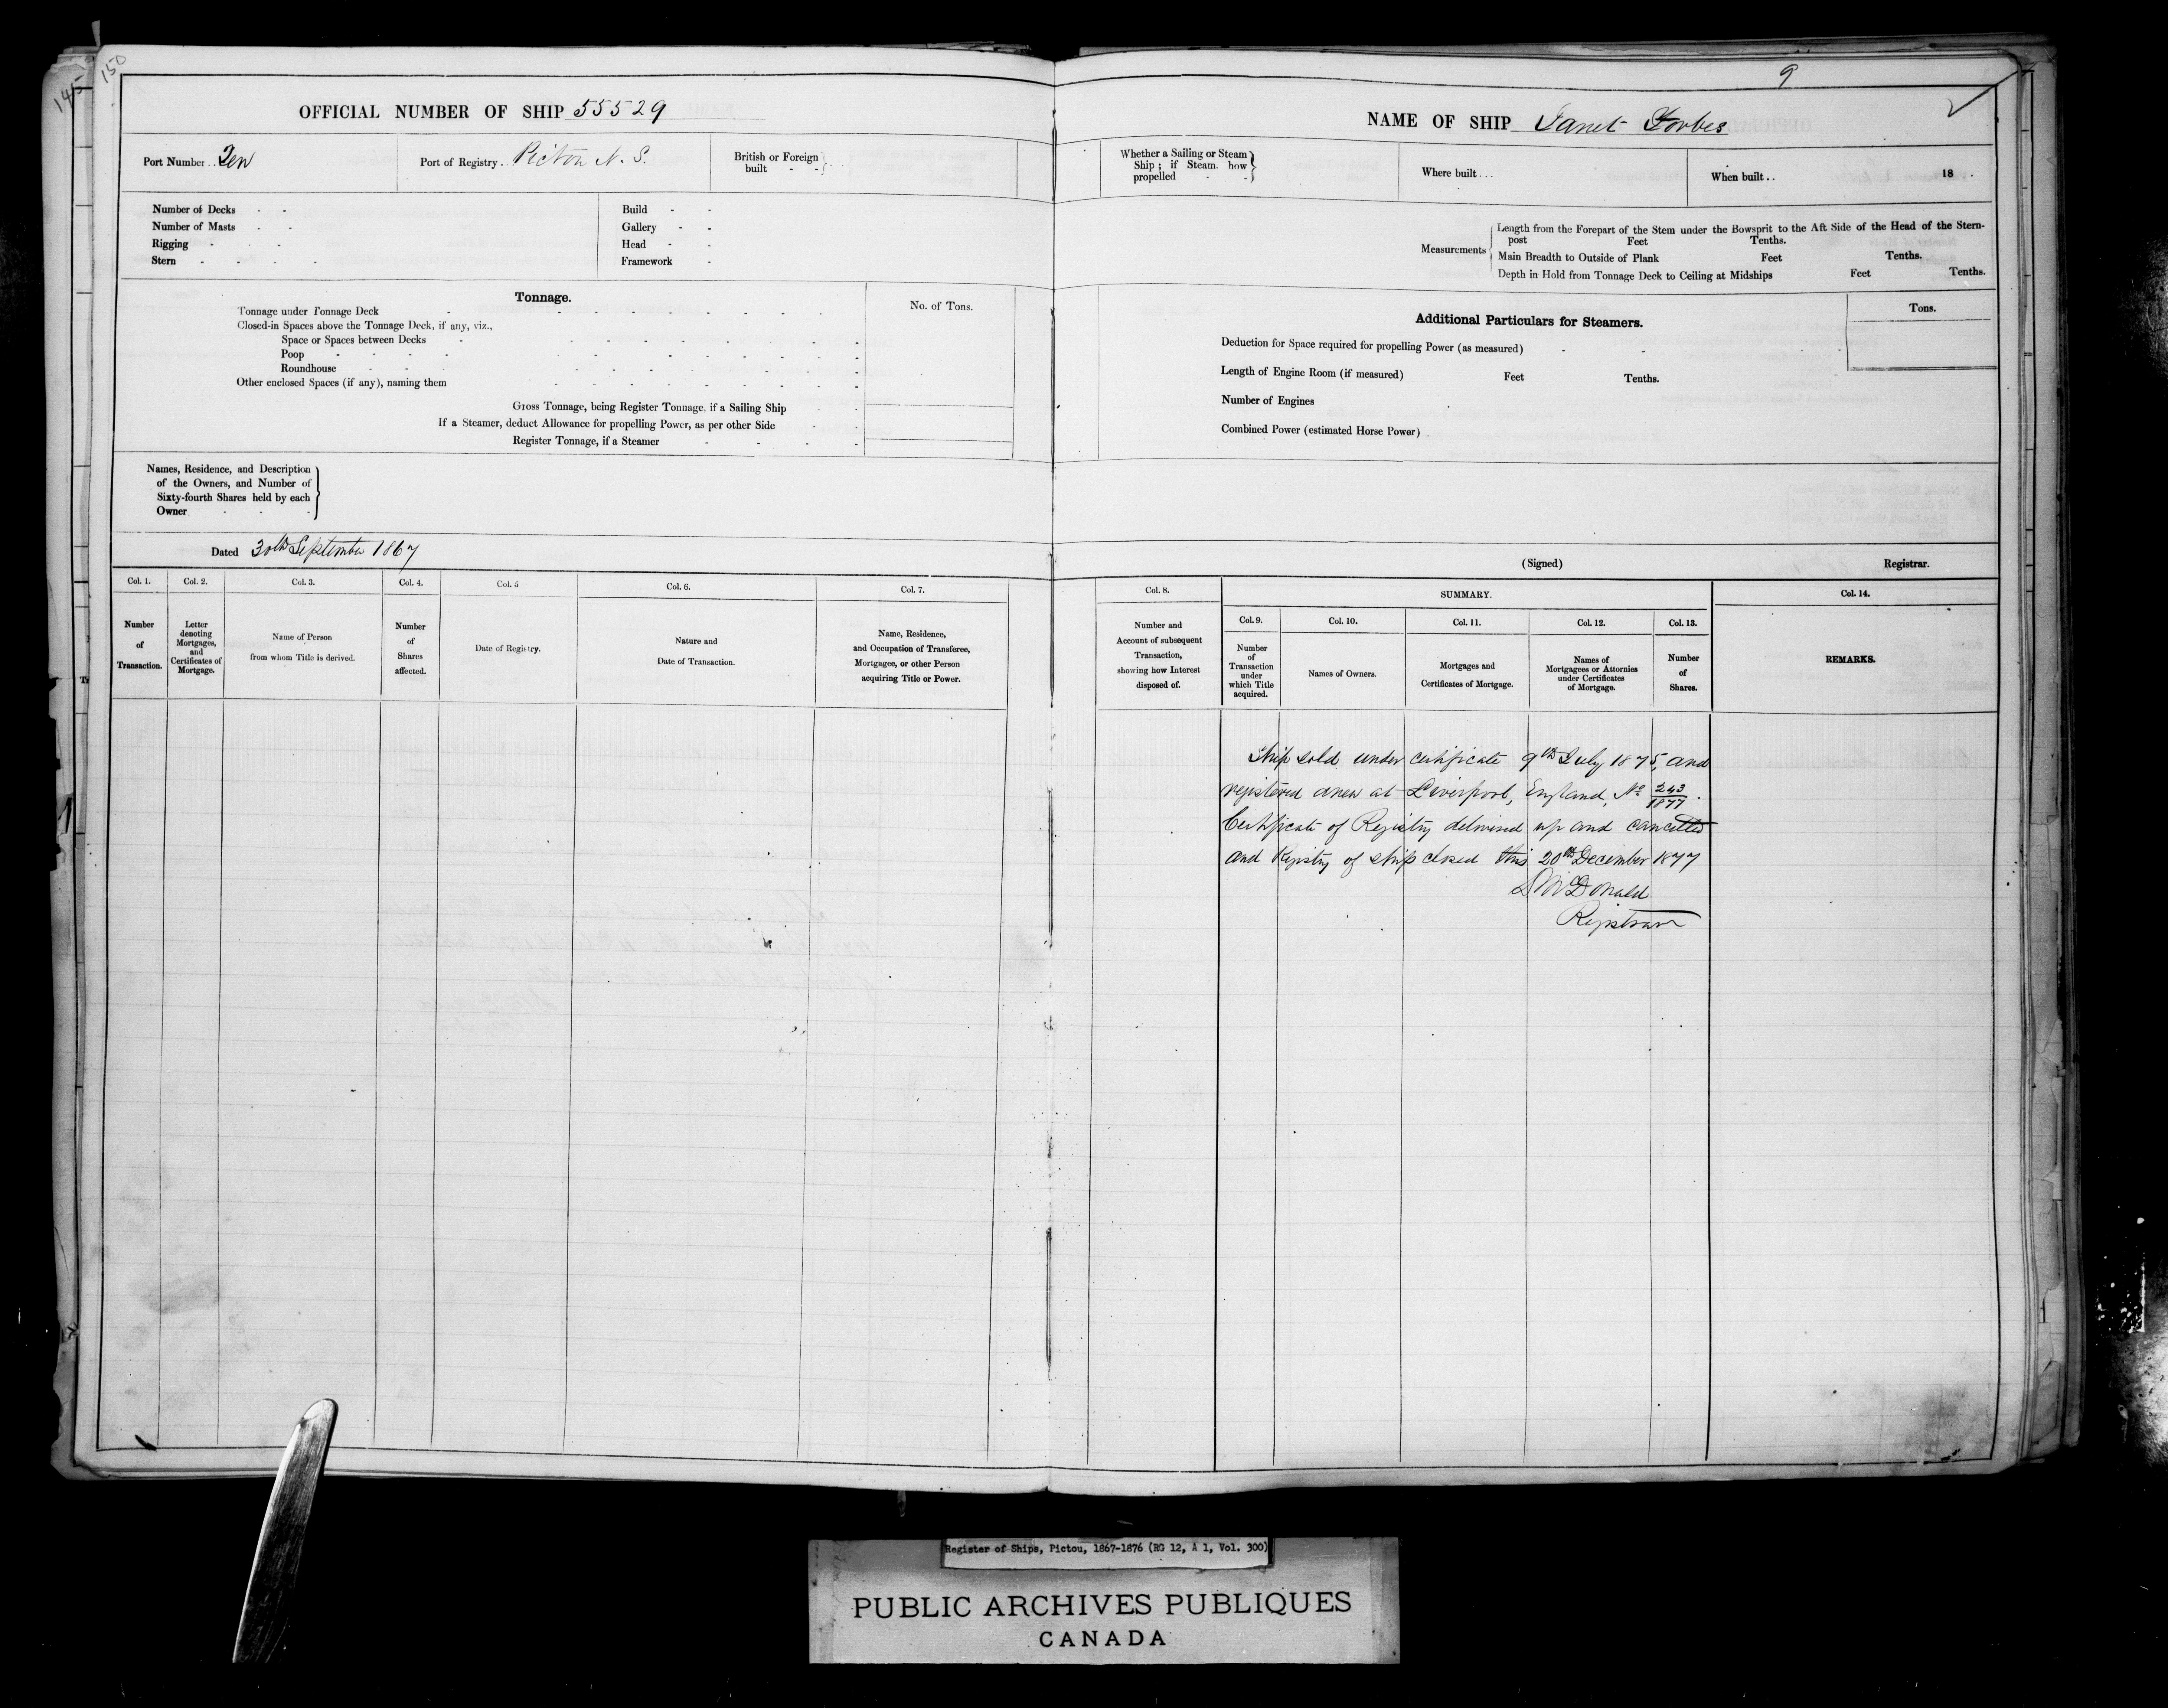 145
150
9
OFFICIAL NUMBER OF SHIP 55529
NAME OF SHIP Janet Forbes
Port Number Ten
Port of Registry Pictou N. S.
British or Foreign built
Whether a Sailing or Steam Ship; if Steam. how propelled
Where built
When built 18
Number of Decks
Number of Masts
Rigging
Stern
Build
Gallery
Head
Framework
Measurements
Length from the Forepart of the Stem under the Bowsprit to the Aft Side of the Head of the Stern-
post Feet Tenths.
Main Breadth to Outside of Plank Feet Tenths.
Depth in Hold from Tonnage Deck to Ceiling at Midships Feet Tenths.
Tonnage.
No. of Tons.
Tonnage under Tonnage Deck
Closed-in Spaces above the Tonnage Deck, if any, viz.,
Space or Spaces between Decks
Poop
Roundhouse
Other enclosed Spaces (if any), naming them
Gross Tonnage, being Register Tonnage, if a Sailing Ship
If a Steamer, deduct Allowance for propelling Power, as per other Side
Register Tonnage, if a Steamer
Additional Particulars for Steamers.
Tons.
Deduction for Space required for propelling Power (as measured)
Length of Engine Room (if measured) Feet Tenths.
Number of Engines
Combined Power (estimated Horse Power)
Names, Residence, and Description
of the Owners, and Number of
Sixty-fourth Shares held by each
Owner
Dated 30th September 1867
(Signed) Registrar.
Col. 1.
Number
of
Transaction.
Col. 2.
Letter
denoting
Mortgages,
and
Certificates of
Mortgage.
Col. 3.
Name of Person
from whom Title is derived.
Col. 4.
Number
of
Shares
affected.
Col. 5
Date of Registry.
Col. 6.
Nature and
Date of Transaction.
Col. 7.
Name, Residence,
and Occupation of Transferee,
Mortgagee, or other Person
acquiring Title or Power.
Col. 8.
Number and
Account of subsequent
Transaction,
showing how Interest
disposed of.
SUMMARY.
Col. 9.
Number
of
Transaction
under
which Title
acquired.
Col. 10.
Names of Owners.
Col. 11.
Mortgages and
Certificates of Mortgage.
Col. 12.
Names of
Mortgagees or Attornies
under Certificates
of Mortgage.
Col. 13.
Number
of
Shares.
Col. 14.
REMARKS.
Ship sold under certificate 9th July 1875, and
registered anew at Liverpool, England, No 243/1877.
Certificate of Registry delivered up and cancelled
and Registry of ship closed this 20th December 1877
D. McDonald
Registrar
Register of Ships, Pictou, 1867-1876 (RG 12, A 1, Vol. 300)
PUBLIC ARCHIVES PUBLIQUES
CANADA